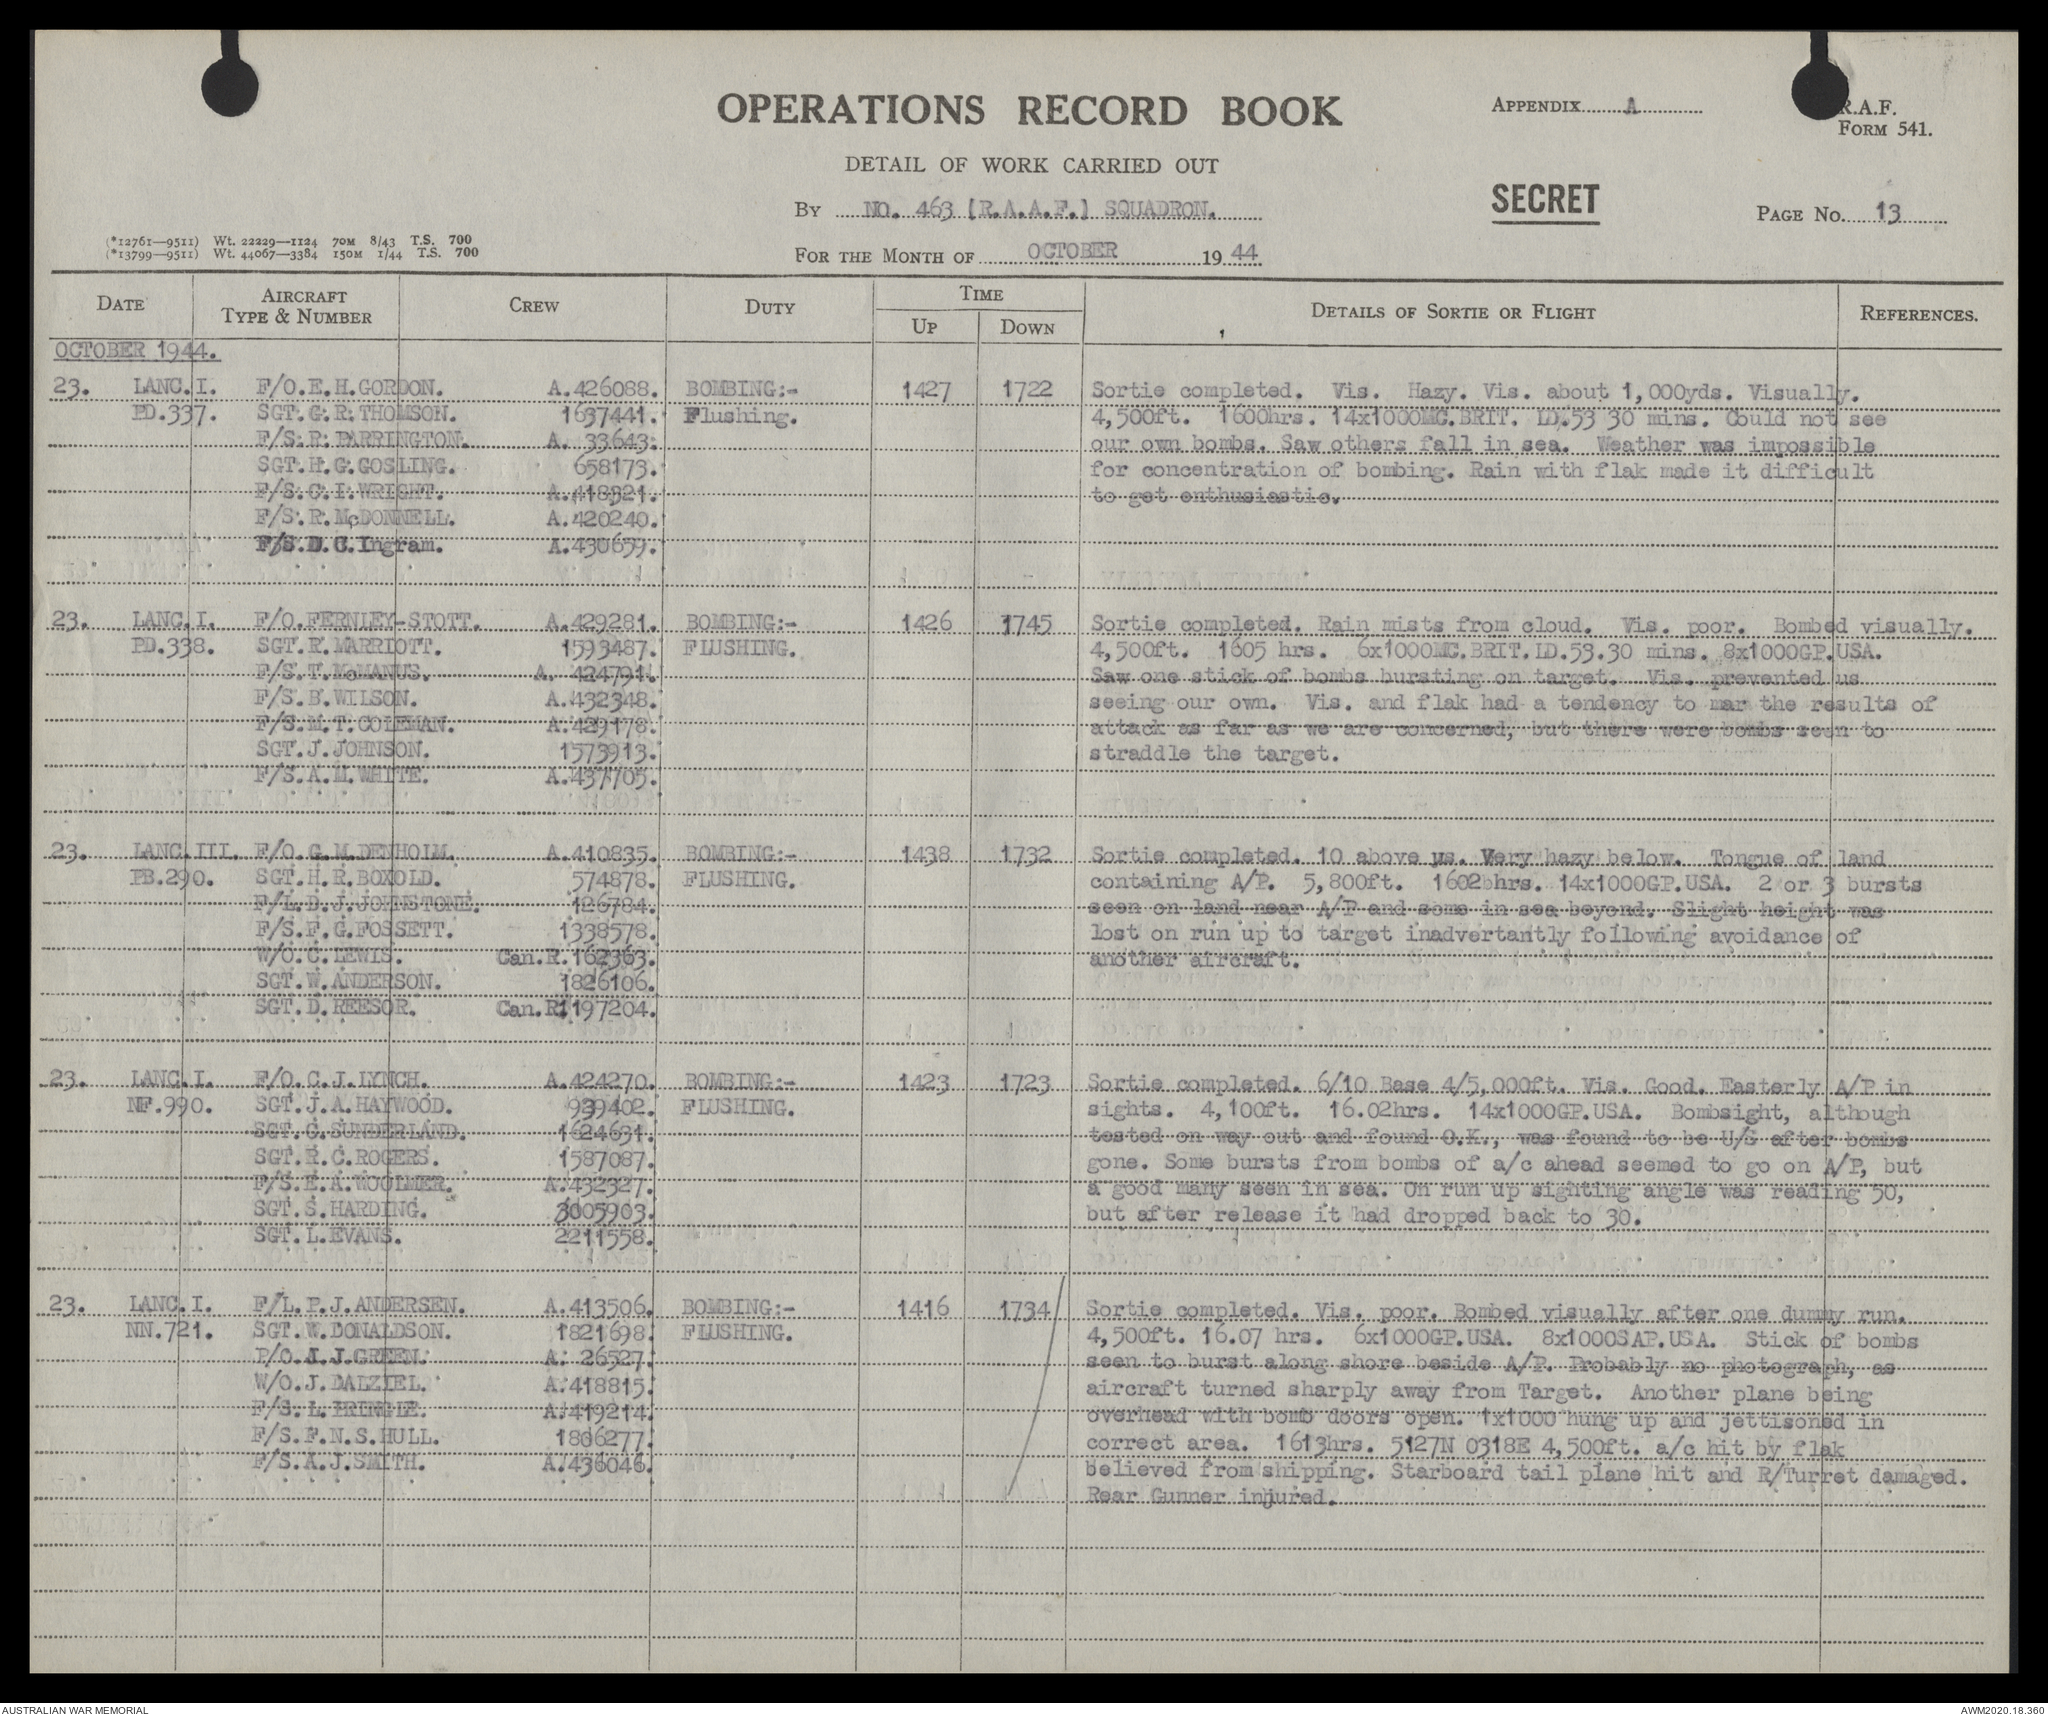 OPERATIONS RECORD BOOK
APPENDIX A
R.A.F.
FORM 541.
DETAIL OF WORK CARRIED OUT
SECRET
By NO. 463 (R.A.A.F.) SQUADRON.
PAGE No. 13
(*12761—9511) Wt. 22229—1124 70M 8/43 T.S. 700
(*13799—9511) Wt. 44067—3384 150M 1/44 T.S. 700
FOR THE MONTH OF OCTOBER 1944
DATE AIRCRAFT TYPE & NUMBER CREW DUTY TIME UP DOWN DETAILS OF SORTIE OR FLIGHT REFERENCES.
OCTOBER 1944.
23. LANC.I. F/O.E.H.GORDON. A.426088. BOMBING:- 1427 1722 Sortie completed. Vis. Hazy. Vis. about 1,000yds. Visually.
PD.337. SGT.G.R.THOMSON. 1637441. Flushing. 4,500ft. 1600hrs. 14x1000MC.BRIT. LD.53 30 mins. Could not see
F/S.R.PARRINGTON. A. 33643. our own bombs. Saw others fall in sea. Weather was impossible
SGT.H.G.GOSLING. 658173. for concentration of bombing. Rain with flak made it difficult
F/S.C.I.WRIGHT. A.418321. to get enthusiastic.
F/S.R.McDONNELL. A.420240.
F/S.D.C.Ingram. A.430659.
23. LANC.I. F/O.FERNLEY-STOTT. A.429281. BOMBING:- 1426 1745 Sortie completed. Rain mists from cloud. Vis. poor. Bombed visually.
PD.338. SGT.R.MARRIOTT. 1593487. FLUSHING. 4,500ft. 1605 hrs. 6x1000MC.BRIT.LD.53.30 mins. 8x1000GP.USA.
F/S.T.McMANUS. A. 424791. Saw one stick of bombs bursting on target. Vis. prevented us
F/S.B.WILSON. A.432348. seeing our own. Vis. and flak had a tendency to mar the results of
F/S.M.T.COLEMAN. A.429178. attack as far as we are concerned, but there were bombs seen to
SGT.J.JOHNSON. 1573913. straddle the target.
F/S.A.M.WHITE. A.437705.
23. LANC.III. F/O.G.M.DENHOLM. A.410835. BOMBING:- 1438 1732 Sortie completed. 10 above us. Very hazy below. Tongue of land
PB.290. SGT.H.R.BOXOLD. 574878. FLUSHING. containing A/P. 5,800ft. 1602bhrs. 14x1000GP.USA. 2 or 3 bursts
F/L.D.J.JOHNSTONE. 126784. seen on land near A/P and some in sea beyond. Slight height was
F/S.F.G.FOSSETT. 1338578. lost on run up to target inadvertantly following avoidance of
W/O.C.LEWIS. Can.R.162363. another aircraft.
SGT.W.ANDERSON. 1826106.
SGT.D.REESOR. Can.R.197204.
23. LANC.I. F/O.C.J.LYNCH. A.424270. BOMBING:- 1423 1723 Sortie completed. 6/10 Base 4/5,000ft. Vis. Good. Easterly A/P in
NF.990. SGT.J.A.HAYWOOD. 939402. FLUSHING. sights. 4,100ft. 16.02hrs. 14x1000GP.USA. Bombsight, although
SGT.G.SUNDERLAND. 1624631. tested on way out and found O.K., was found to be U/S after bombs
SGT.R.C.ROGERS. 1587087. gone. Some bursts from bombs of a/c ahead seemed to go on A/P, but
F/S.E.A.WOOLMER. A.432327. a good many seen in sea. On run up sighting angle was reading 50,
SGT.S.HARDING. 3005903. but after release it had dropped back to 30.
SGT.L.EVANS. 2211558.
23. LANC.I. F/L.P.J.ANDERSEN. A.413506. BOMBING:- 1416 1734 Sortie completed. Vis. poor. Bombed visually after one dummy run.
NN.721. SGT.W.DONALDSON. 1821698. FLUSHING. 4,500ft. 16.07 hrs. 6x1000GP.USA. 8x1000SAP.USA. Stick of bombs
P/O.J.J.GREEN. A. 26527. seen to burst along shore beside A/P. Probably no photograph, as
W/O.J.DALZIEL. A.418815. aircraft turned sharply away from Target. Another plane being
F/S.L.PRINGLE. A.419214. overhead with bomb doors open. 1x1000 hung up and jettisoned in
F/S.F.N.S.HULL. 1806277. correct area. 1613hrs. 5127N 0318E 4,500ft. a/c hit by flak
F/S.A.J.SMITH. A.436046. believed from shipping. Starboard tail plane hit and R/Turret damaged.
Rear Gunner injured.
AUSTRALIAN WAR MEMORIAL
AWM2020.18.360